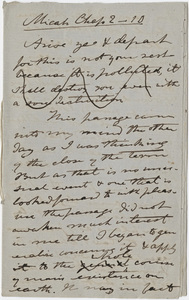 Micah Chap 2-10
Arise ye & depart
for this is not your rest
because it is polluted, it
shall destroy you even with
a sore destruction
This passage came
into my mind the other
day as I was thinking
of the close of the term
But as that is no unu-
sual event & one that is
looked forward to with pleas-
ure the passage did not
awaken much interest
in me till I began to
& apply
it to the whole
of man's existence on
earth. It may in fact